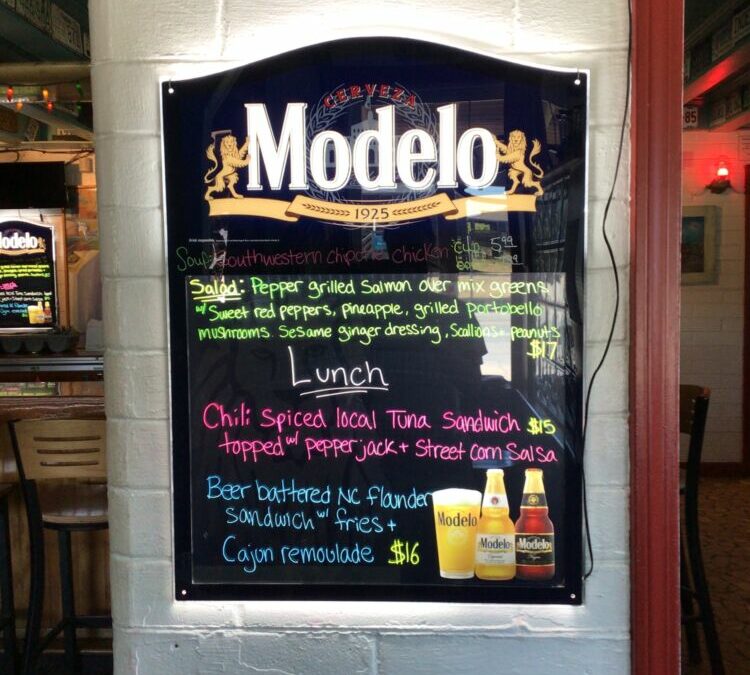 CERVEZA
Modelo
1925
Soup: Southwestern chipotle chicken Cup 5.99
Salad: Pepper grilled Salmon over mix greens
w/ Sweet red peppers, pineapple, grilled portobello
mushrooms. Sesame ginger dressing, Scallions + peanuts
$17
Lunch
Chili Spiced local Tuna Sandwich $15
topped w/ pepperjack + Street corn Salsa
Beer battered NC flounder
Sandwich w/ fries +
Cajun remoulade $16
Modelo
Modelo
Modelo
Modelo
85